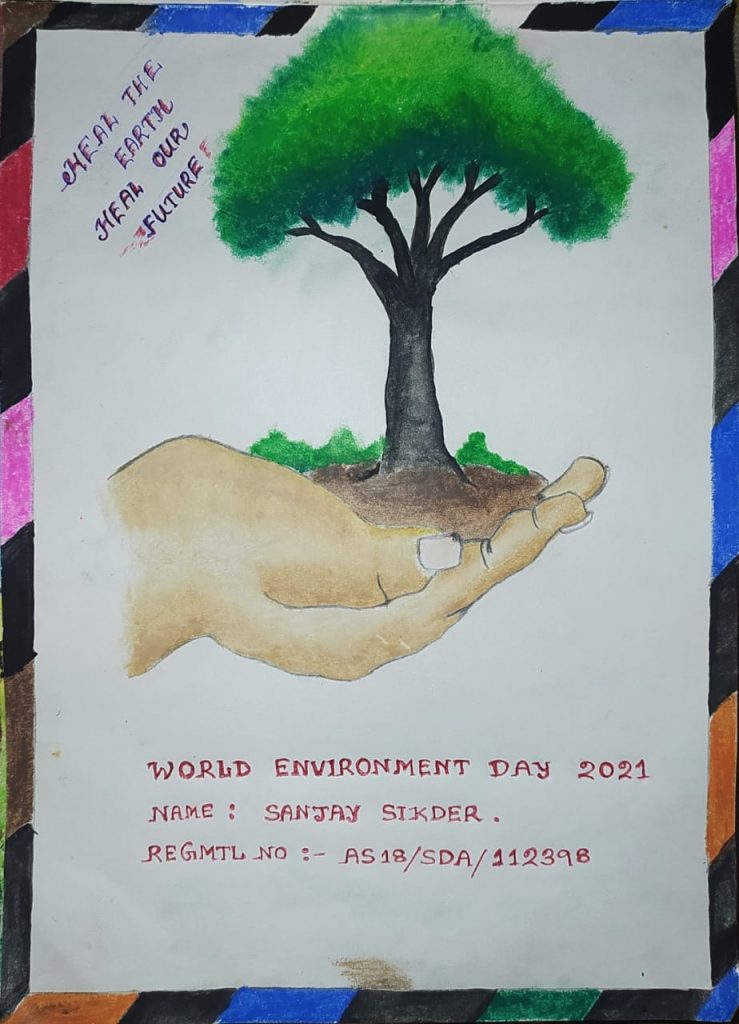 HEAL THE
EARTH
HEAL OUR
FUTURE!
WORLD ENVIRONMENT DAY 2021
NAME : SANJAY SIKDER.
REGMTL NO :- AS18/SDA/112398